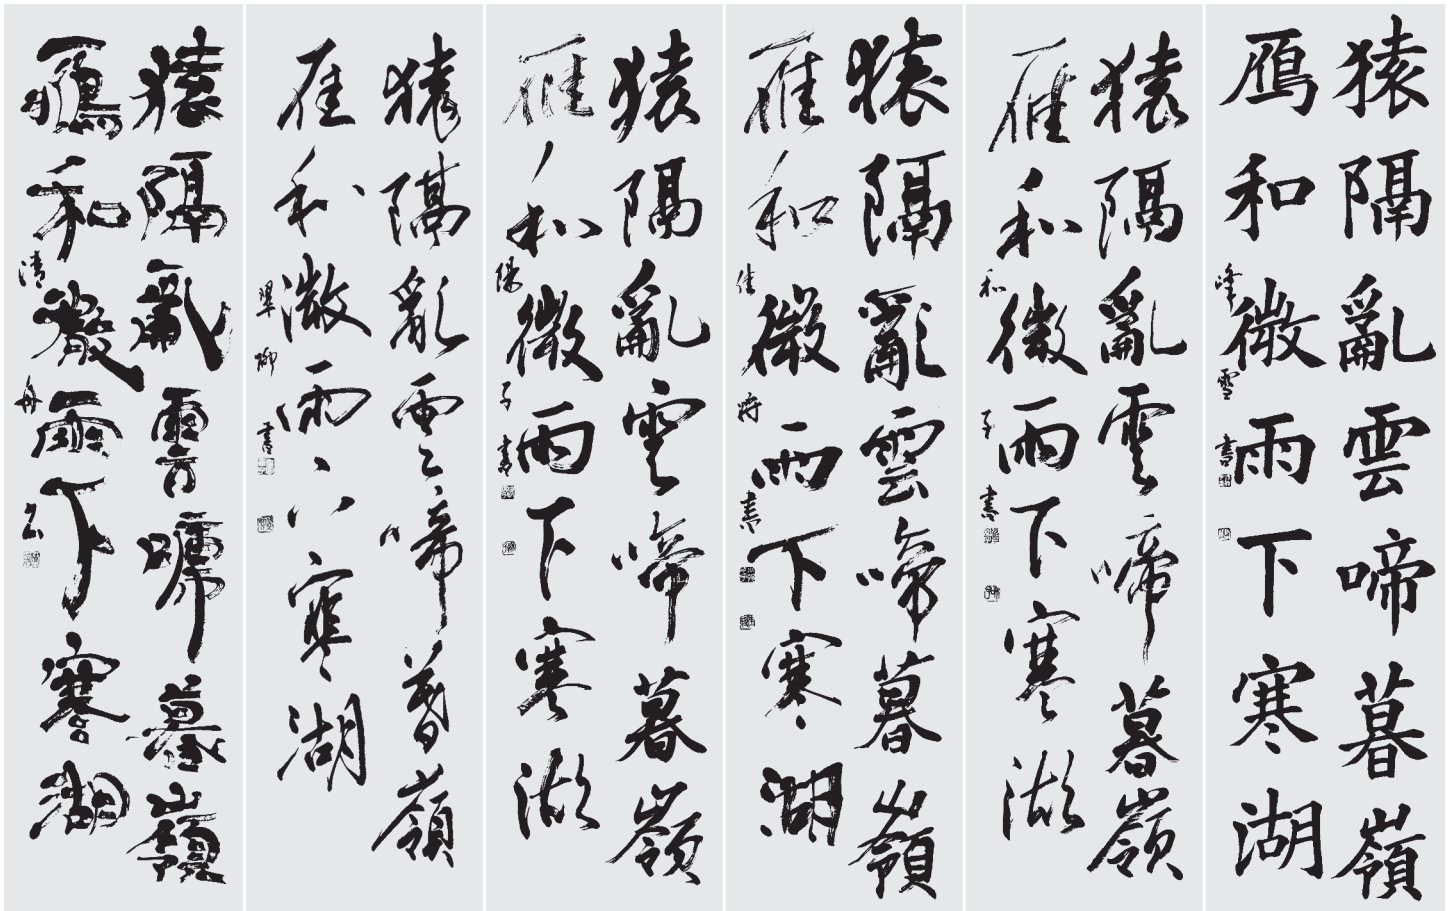 猿隔亂雲啼暮嶺
鴈和微雨下寒湖
峰雪書
猿隔亂雲啼暮嶺
雁和微雨下寒湖
和子書
猿隔亂雲啼暮嶺
雁和微雨下寒湖
佳時書
猿隔亂雲啼暮嶺
雁和微雨下寒湖
陽子書
猿隔亂雲啼暮嶺
雁和微雨下寒湖
翠柳書
猿隔亂雲嗁暮嶺
鴈和微雨下寒湖
清舟玄